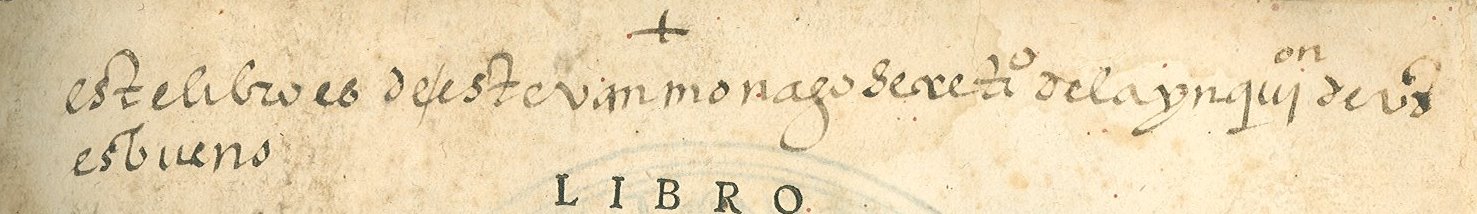 +
este libro es de estevan monago secretio de la ynquion de vd
es bueno
LIBRO